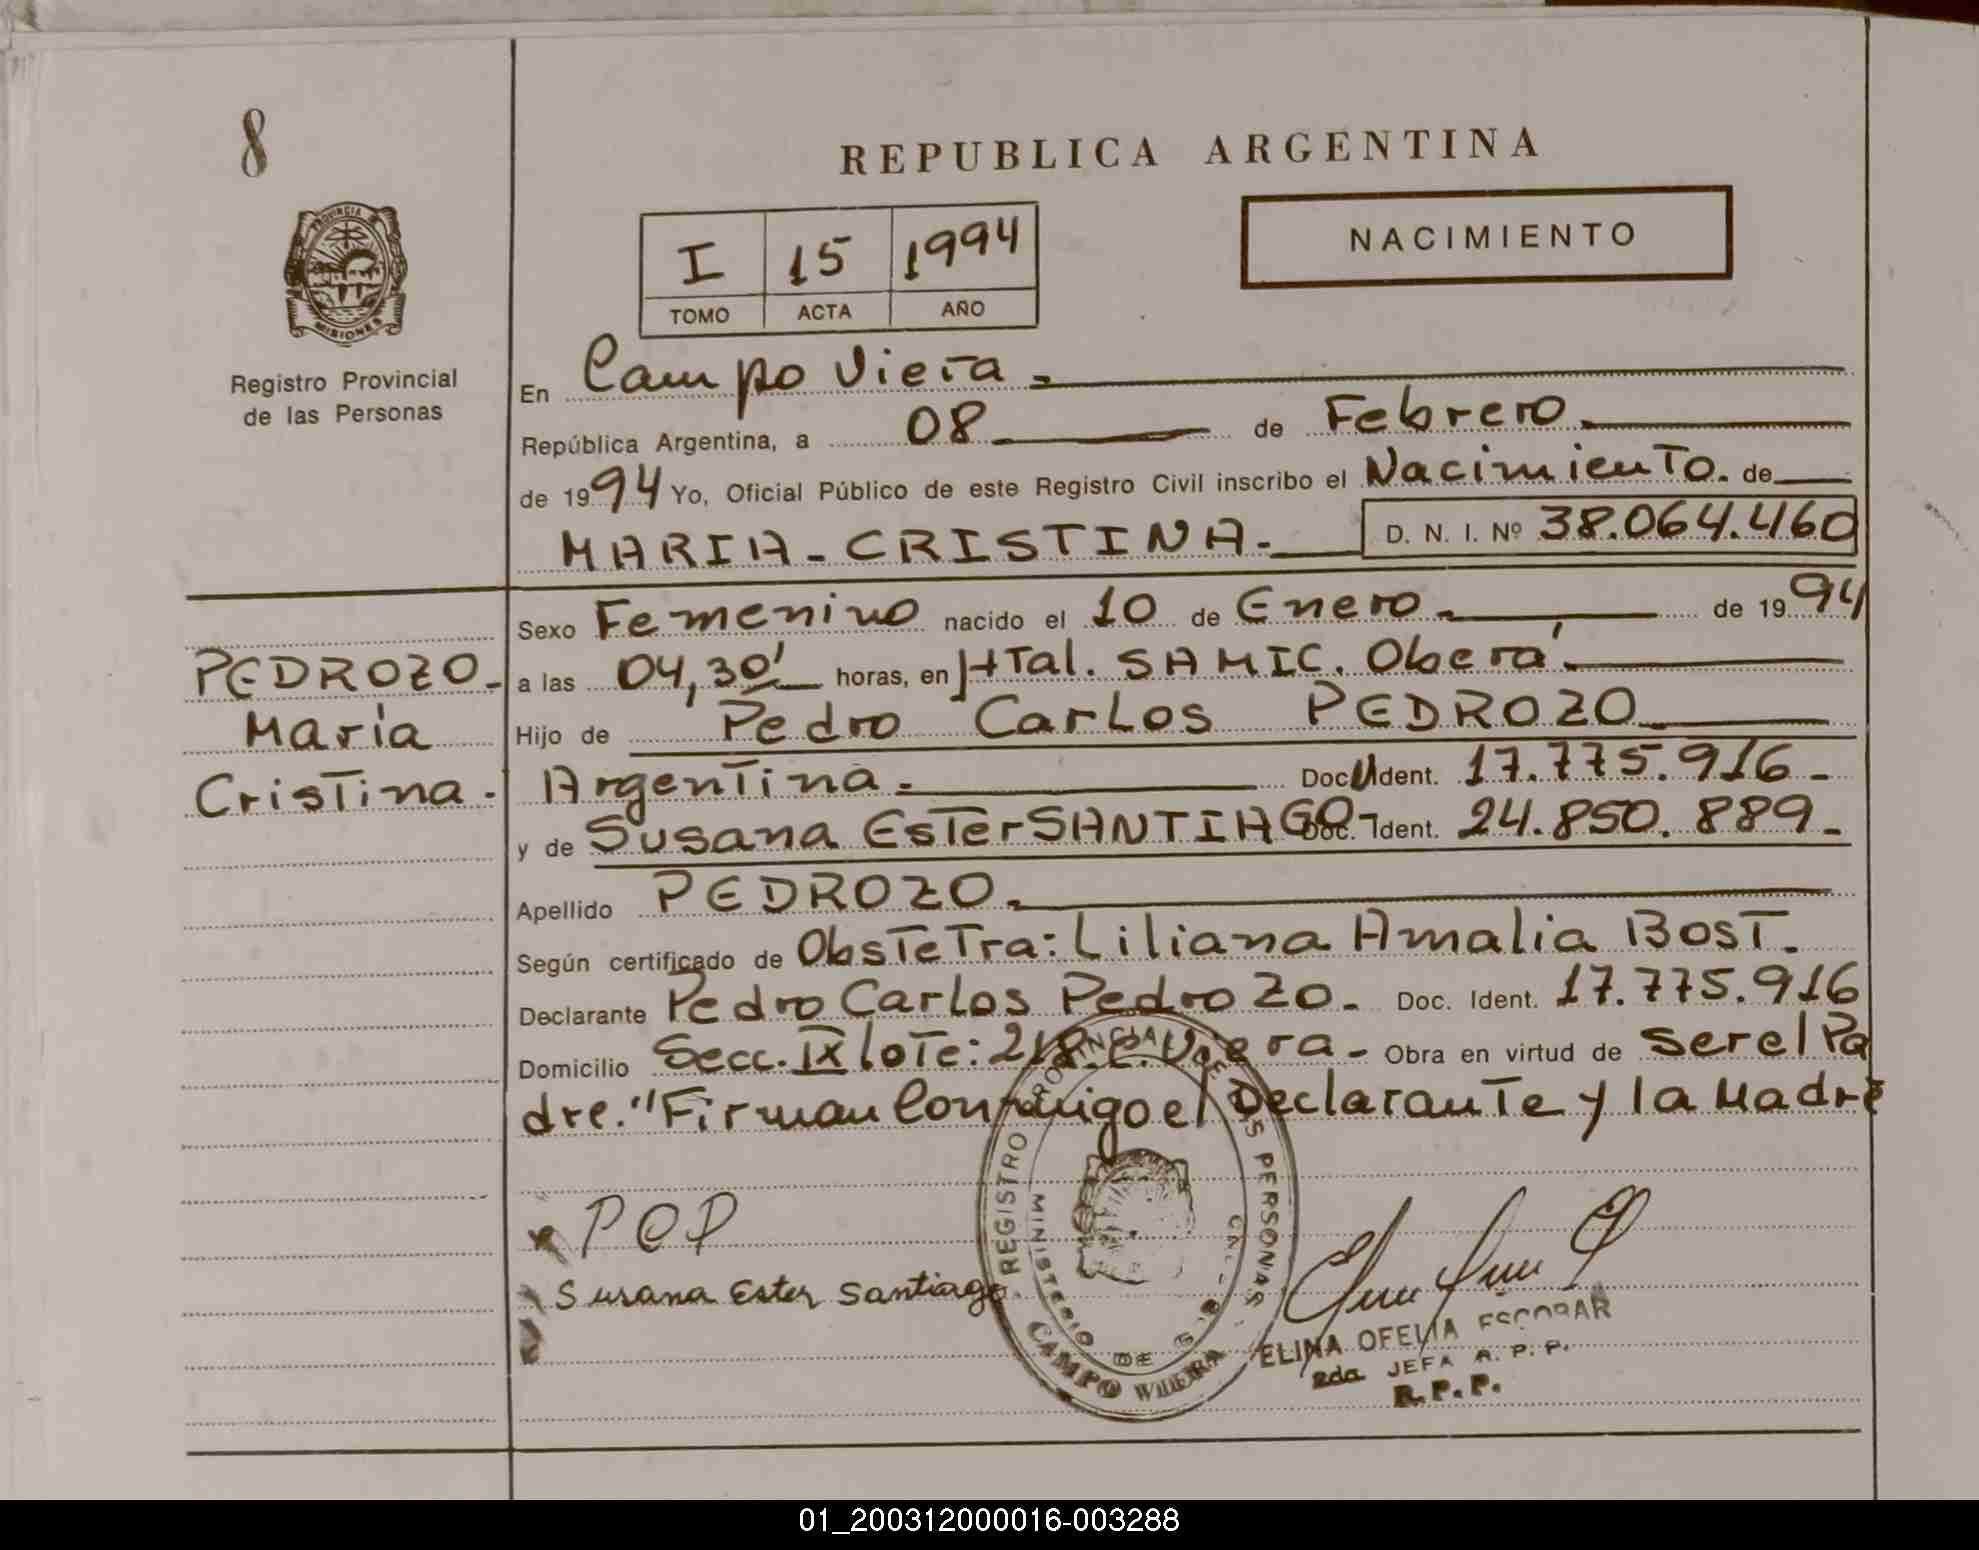 8
REPUBLICA ARGENTINA
NACIMIENTO
I 15 1994
TOMO ACTA AÑO
PROVINCIA DE
MISIONES
Registro Provincial
de las Personas
En Campo Viera.
República Argentina, a 08 de Febrero.
de 1994 Yo, Oficial Público de este Registro Civil inscribo el Nacimiento. de
MARIA - CRISTINA. D. N. I. Nº 38.064.460
PEDROZO.
María
Cristina.
Sexo Femenino nacido el 10 de Enero. de 1994
a las 04,30' horas, en HTal. SAMIC. Oberá.
Hijo de Pedro Carlos PEDROZO
Argentina. Doc. Ident. 17.775.916-
y de Susana Ester SANTIAGO Doc. Ident. 24.850.889-
Apellido PEDROZO.
Según certificado de Obstetra: Liliana Amalia BosT.
Declarante Pedro Carlos Pedrozo. Doc. Ident. 17.775.916
Domicilio Secc. IX loTe: 218. C. Viera. Obra en virtud de ser el Pa
dre. "Firman conmigo el Declarante y la Madre
POP
Susana Ester Santiago
REGISTRO PROVINCIAL DE LAS PERSONAS
MINISTERIO DE G
CAMPO VIERA
ELINA OFELIA ESCOBAR
2da JEFA A. P. P.
R. P. P.
01_200312000016-003288